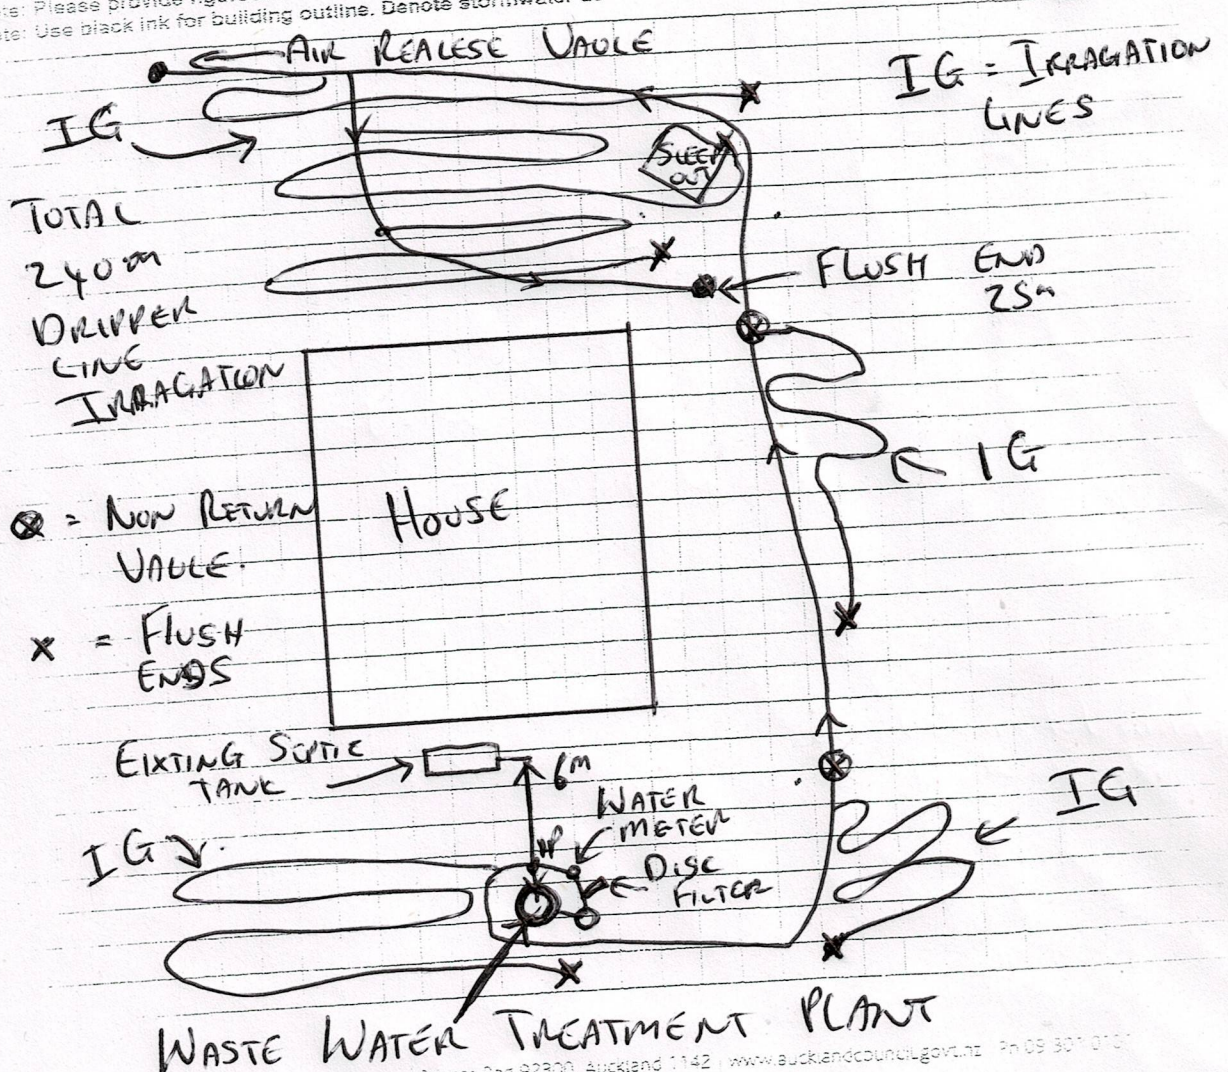 te: Please provide
te: Use black ink for building outline. Denote stormwater
AIR REALESE VAULE
IG = IRRAGATION
LINES
IG
SLEEP
OUT
TOTAL
240m
DRIPPER
LINE
IRRAGATION
FLUSH END
25m
IG
HOUSE
⊗ = NON RETURN
VAULE.
x = FLUSH
ENDS
EIXTING SEPTIC
TANK
6m
WATER
METER
IG
DISC
FILTER
IG
WASTE WATER TREATMENT PLANT
92300, Auckland 1142 | www.aucklandcouncil.govt.nz Ph 09 301 0101